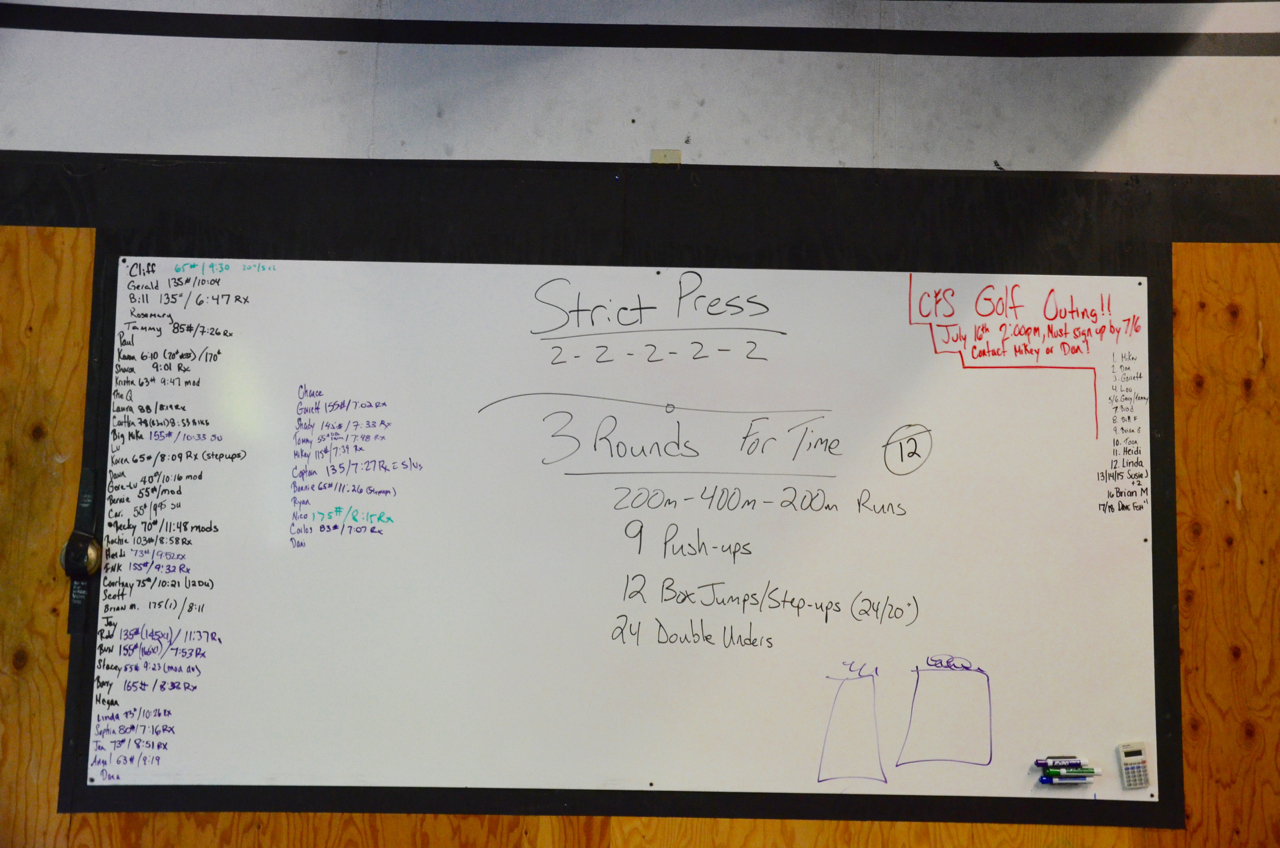 Cliff 65# / 9:30
Gerald 135# / 10:04
Bill 135# / 6:47 Rx
Rosemary
Tammy 85# / 7:26 Rx
Paul
Karen 6:10 /170#
Shawn 9:01 Rx
Kristin 63# 9:47 mod
The Q
Laura 88 /
Caitlin
Big Mike 155# / 10:33 DU
Lu
Karen 65# / 8:09 Rx (step ups)
Dana
Gore-Lu 40# / 10:16 mod
Bernie 55# / mod
Car. 55# /
Becky 70# / 11:48 mods
Rachie 103# / 8:58 Rx
Heidi 73# / 9:52 Rx
FNK 155# / 9:32 Rx
Courtney 75# / 10:21 (12 DU)
Scott
Brian M. 175 (1) / 8:11
Jay
Rob 135# (145x1) / 11:37 Rx
155# / 7:53 Rx
Stacey 55# 9:23 (mod du)
Barry 165# / 8:32 Rx
Megan
Linda 73# / 10:26 Rx
Sophia 80# / 7:16 Rx
Jen 73# / 8:51 Rx
Angel 63# / 9:19
Dana
Chance
Garett 155# / 7:02 Rx
Shady 145# / 7:33 Rx
Tommy 55# 7:48 Rx
Mikey 115# / 7:39 Rx
Captain 135 / 7:27 Rx
Bonnie 65# / 11:26 (Stepups)
Ryan
Nico 175# / 8:15 Rx
Carlos 83# / 7:07 Rx
Dani
Strict Press
2 - 2 - 2 - 2 - 2
3 Rounds For Time
12
200m - 400m - 200m Runs
9 Push-ups
12 Box Jumps/Step-ups (24/20")
24 Double Unders
CFS Golf Outing!!
July 16th 2:00pm, Must sign up by 7/6
Contact Mikey or Dan!
1. Mike
2. Dan
3. Garett
4. Lou
5/6 Gary/
7.
8.
9. Brian S
10. Toon
11. Heidi
12. Linda
13/14/15 Susie J
+2
16 Brian M
17/18 Dave Fish +1